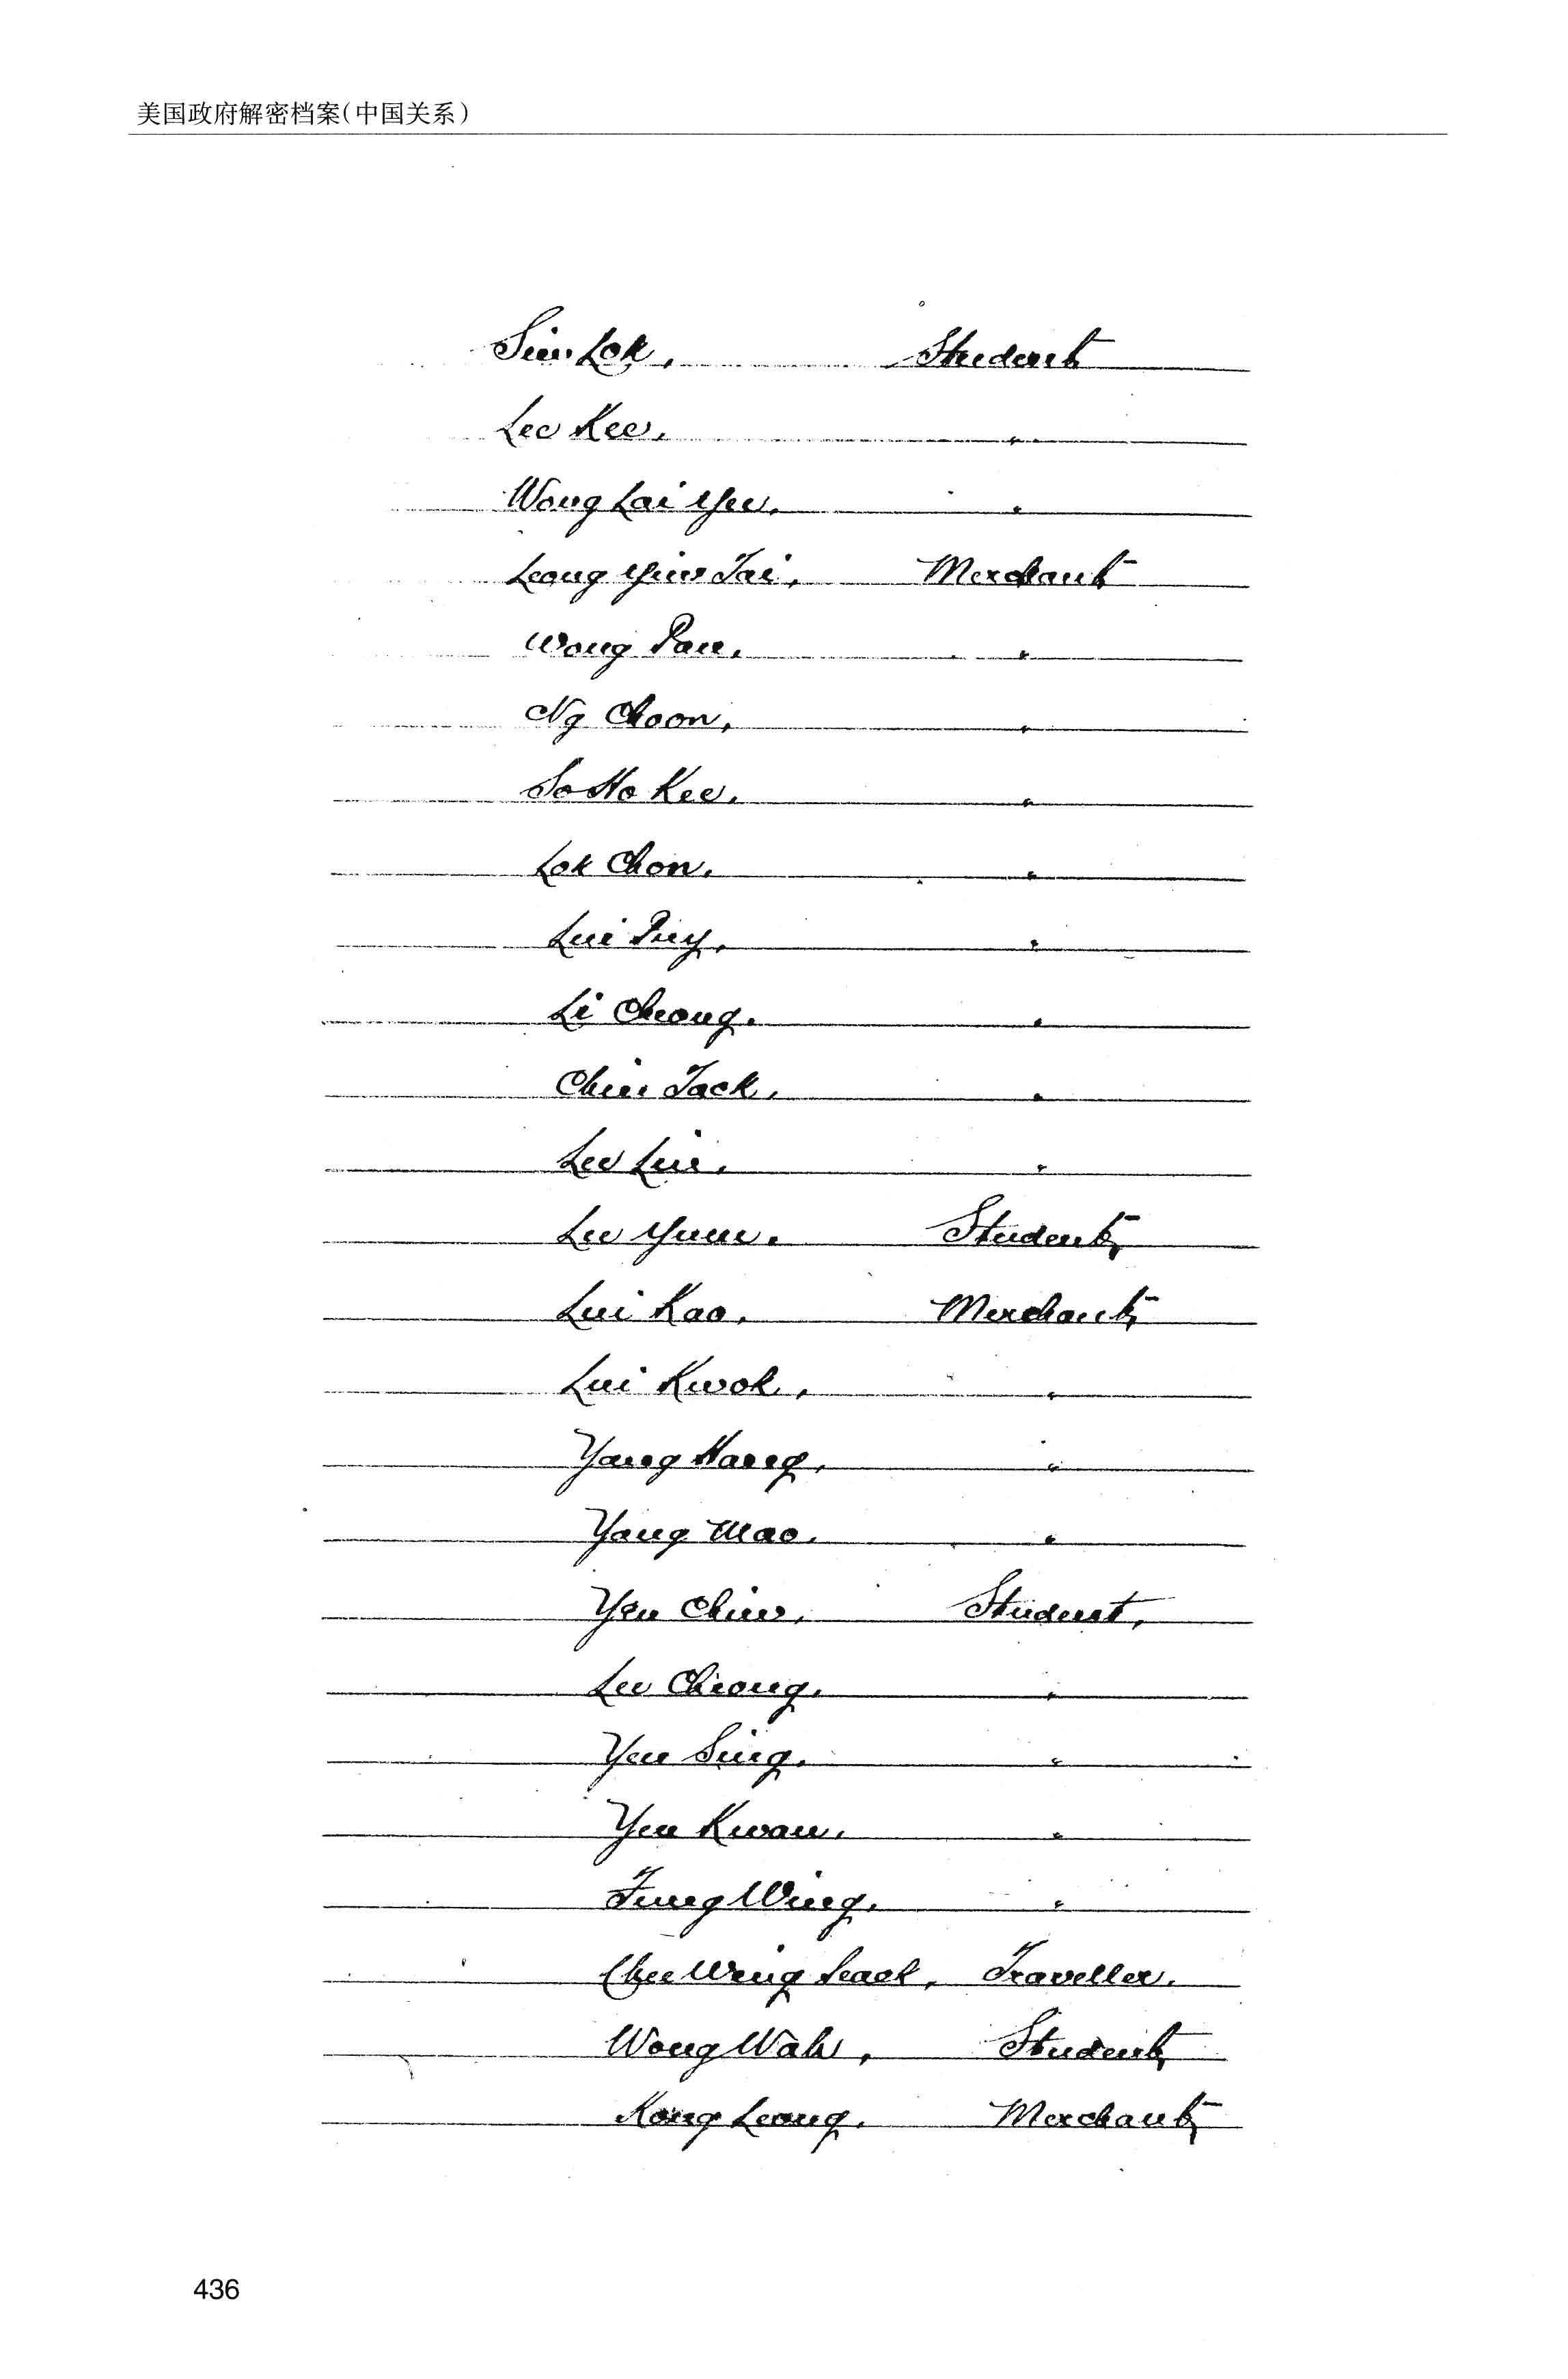 美国政府解密档案(中国关系)
Siu Lok, Student
Lee Kee, "
Wong Lai Yee, "
Leong Yiw Tai, Merchant
Wong Pau, "
Ng Choon, "
So Ho Kee, "
Lok Chon, "
Lui Puy, "
Li Cheong, "
Chin Tack, "
Lee Lui, "
Lee Yuen, Student,
Lui Kao, Merchant,
Lui Kwok, "
Yang Hang, "
Yang Mao, "
Yeu Chiw, Student,
Lee Cheong, "
Yeu Sing, "
Yeu Kwan, "
Fung Wing, "
Wing Traveller,
Wong Wah, Student,
Kong Leong, Merchant,
436